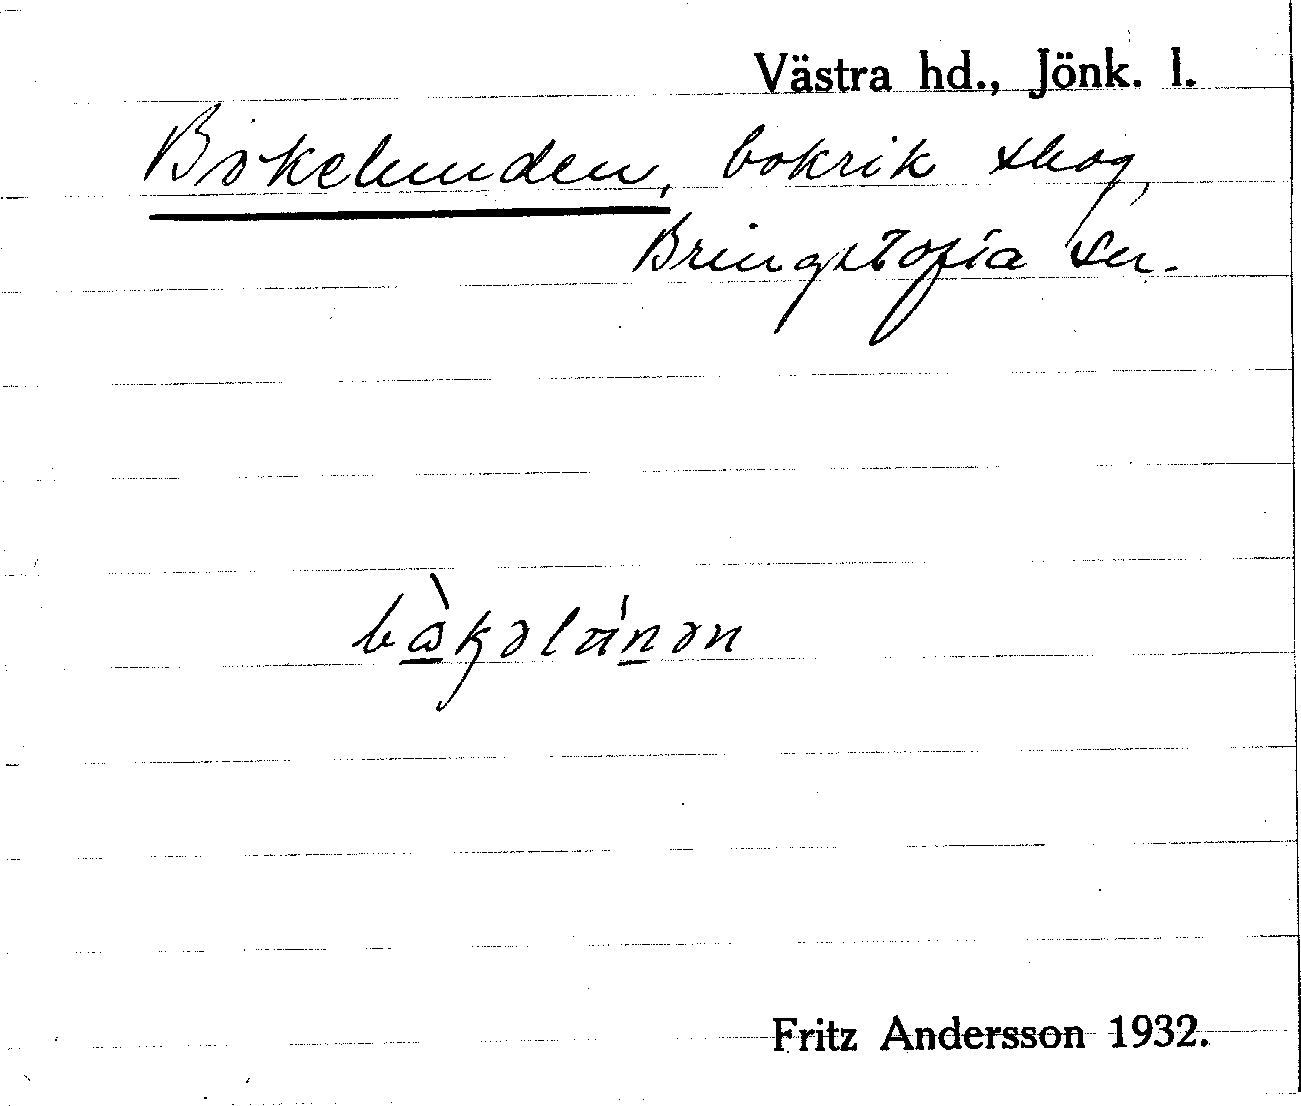 Västra hd., Jönk. l.
Bökelunden, bokrik skog,
Bringetofta sn.
Fritz Andersson 1932.